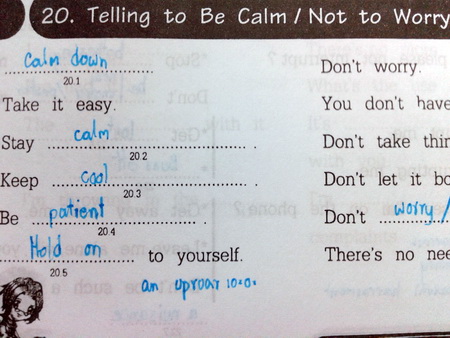 20. Telling to Be Calm / Not to Worry
Calm down
20.1
Take it easy.
Stay calm
20.2
Keep cool
20.3
Be patient
20.4
Hold on to yourself.
20.5
an uproar
Don't worry.
You don't have
Don't take
Don't let it
Don't worry /
There's no